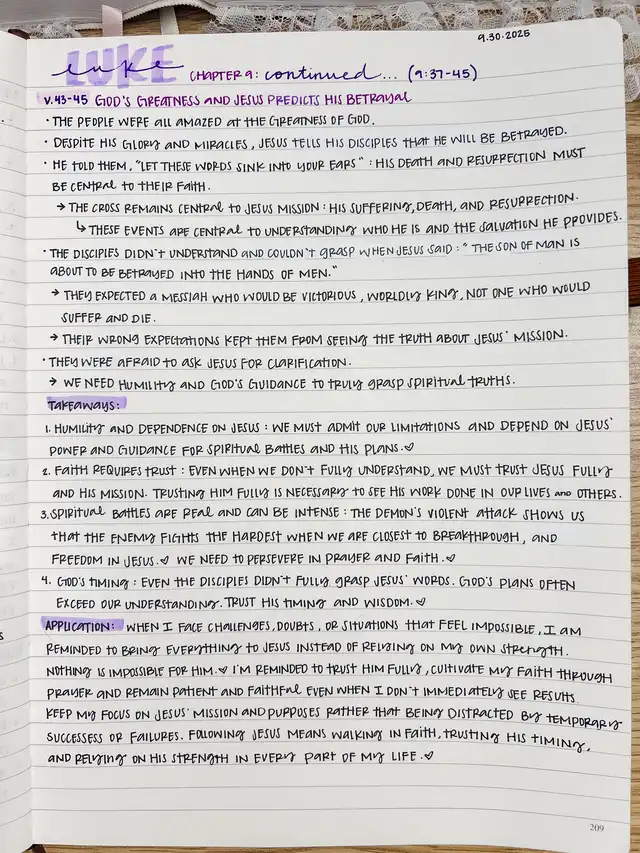 9.30.2025
LUKE
luke CHAPTER 9: continued... (9:37-45)
V.43-45 GOD'S GREATNESS AND JESUS PREDICTS HIS BETRAYAL
• THE PEOPLE WERE ALL AMAZED AT THE GREATNESS OF GOD.
• DESPITE HIS GLORY AND MIRACLES, JESUS TELLS HIS DISCIPLES THAT HE WILL BE BETRAYED.
• HE TOLD THEM, "LET THESE WORDS SINK INTO YOUR EARS": HIS DEATH AND RESURRECTION MUST
BE CENTRAL TO THEIR FAITH.
→ THE CROSS REMAINS CENTRAL TO JESUS MISSION: HIS SUFFERING, DEATH, AND RESURRECTION.
↳ THESE EVENTS ARE CENTRAL TO UNDERSTANDING WHO HE IS AND THE SALVATION HE PROVIDES.
• THE DISCIPLES DIDN'T UNDERSTAND AND COULDN'T GRASP WHEN JESUS SAID: "THE SON OF MAN IS
ABOUT TO BE BETRAYED INTO THE HANDS OF MEN."
→ THEY EXPECTED A MESSIAH WHO WOULD BE VICTORIOUS, WORLDLY KING, NOT ONE WHO WOULD
SUFFER AND DIE.
→ THEIR WRONG EXPECTATIONS KEPT THEM FROM SEEING THE TRUTH ABOUT JESUS' MISSION.
• THEY WERE AFRAID TO ASK JESUS FOR CLARIFICATION.
→ WE NEED HUMILITY AND GOD'S GUIDANCE TO TRULY GRASP SPIRITUAL TRUTHS.
TAKEAWAYS:
1. HUMILITY AND DEPENDENCE ON JESUS: WE MUST ADMIT OUR LIMITATIONS AND DEPEND ON JESUS'
POWER AND GUIDANCE FOR SPIRITUAL BATTLES AND HIS PLANS.♡
2. FAITH REQUIRES TRUST: EVEN WHEN WE DON'T FULLY UNDERSTAND, WE MUST TRUST JESUS FULLY
AND HIS MISSION. TRUSTING HIM FULLY IS NECESSARY TO SEE HIS WORK DONE IN OUR LIVES and OTHERS.
3. SPIRITUAL BATTLES ARE REAL AND CAN BE INTENSE: THE DEMON'S VIOLENT ATTACK SHOWS US
THAT THE ENEMY FIGHTS THE HARDEST WHEN WE ARE CLOSEST TO BREAKTHROUGH, AND
FREEDOM IN JESUS.♡ WE NEED TO PERSEVERE IN PRAYER AND FAITH.♡
4. GOD'S TIMING: EVEN THE DISCIPLES DIDN'T FULLY GRASP JESUS' WORDS. GOD'S PLANS OFTEN
EXCEED OUR UNDERSTANDING. TRUST HIS TIMING AND WISDOM.♡
APPLICATION: WHEN I FACE CHALLENGES, DOUBTS, OR SITUATIONS THAT FEEL IMPOSSIBLE, I AM
REMINDED TO BRING EVERYTHING TO JESUS INSTEAD OF RELYING ON MY OWN STRENGTH.
NOTHING IS IMPOSSIBLE FOR HIM.♡ I'M REMINDED TO TRUST HIM FULLY, CULTIVATE MY FAITH THROUGH
PRAYER AND REMAIN PATIENT AND FAITHFUL EVEN WHEN I DON'T IMMEDIATELY SEE RESULTS.
KEEP MY FOCUS ON JESUS' MISSION AND PURPOSES RATHER THAT BEING DISTRACTED BY TEMPORARY
SUCCESSES OR FAILURES. FOLLOWING JESUS MEANS WALKING IN FAITH, TRUSTING HIS TIMING,
AND RELYING ON HIS STRENGTH IN EVERY PART OF MY LIFE.♡
209